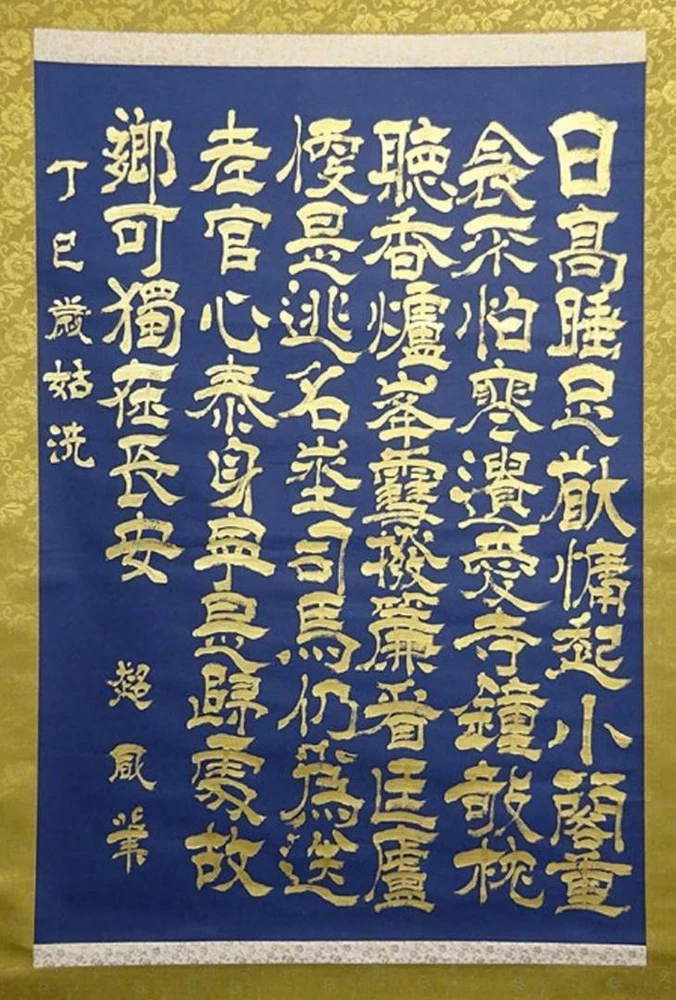 日高睡足猷慵起小閣重
衾不怕寒遺愛寺鐘敧枕
聽香爐峯雪撥簾看匡廬
便是逃名埊司馬仍為送
老官心泰身寧是歸處故
鄉可獨在長安
超 筆
丁巳歳姑洗